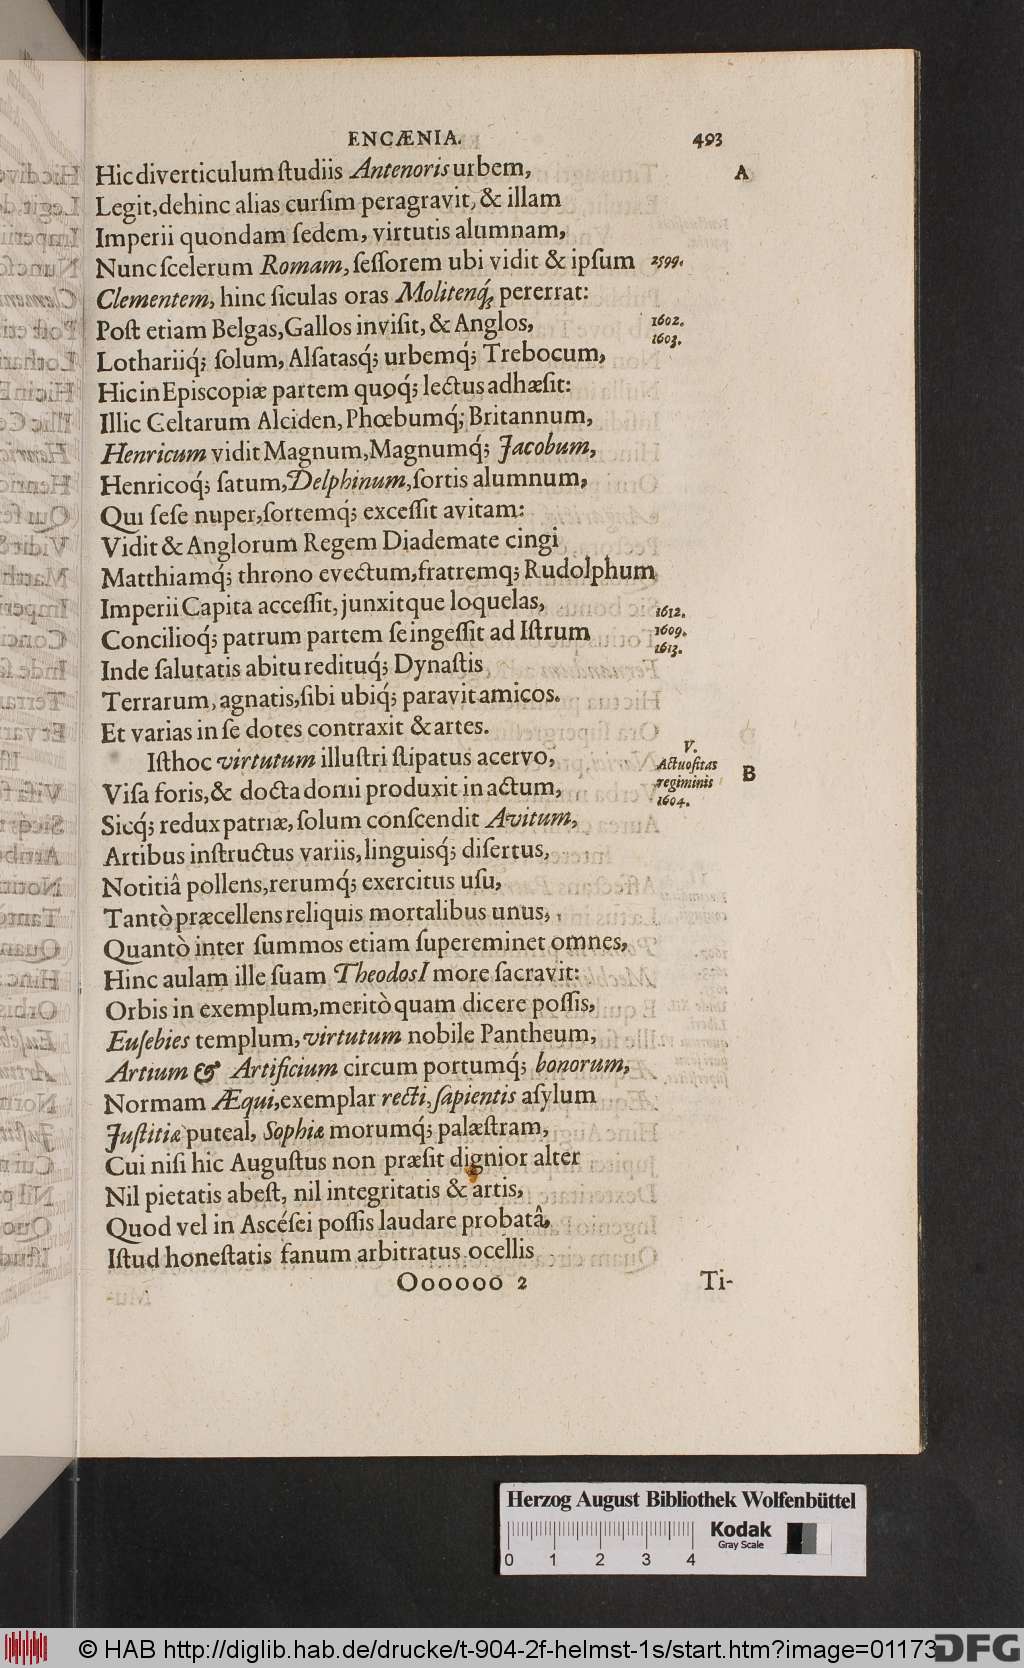 ENCÆNIA. 493
Hic diverticulum ſtudiis Antenoris urbem, A
Legit, dehinc alias curſim peragravit, & illam
Imperii quondam ſedem, virtutis alumnam,
Nunc ſcelerum Romam, ſeſſorem ubi vidit & ipſum 2599.
Clementem, hinc ſiculas oras Molitenq́; pererrat:
Poſt etiam Belgas, Gallos inviſit, & Anglos, 1602.
1603.
Lothariiq́; ſolum, Alſatasq́; urbemq́; Trebocum,
Hic in Epiſcopiæ partem quoq́; lectus adhæſit:
Illic Celtarum Alciden, Phœbumq́; Britannum,
Henricum vidit Magnum, Magnumq́; Jacobum,
Henricoq́; ſatum, Delphinum, ſortis alumnum,
Qui ſeſe nuper, ſortemq́; exceſſit avitam:
Vidit & Anglorum Regem Diademate cingi
Matthiamq́; throno evectum, fratremq; Rudolphum
Imperii Capita acceſſit, junxitque loquelas, 1612.
Concilioq́; patrum partem ſe ingeſſit ad Iſtrum 1609.
1613.
Inde ſalutatis abitu redituq́; Dynaſtis
Terrarum, agnatis, ſibi ubiq́; paravit amicos.
Et varias in ſe dotes contraxit & artes.
Iſthoc virtutum illuſtri ſtipatus acervo, V.
Actuoſitas B
Viſa foris, & docta domi produxit in actum, regiminis
1604.
Sicq́; redux patriæ, ſolum conſcendit Avitum,
Artibus inſtructus variis, linguisq́; diſertus,
Notitiâ pollens, rerumq́; exercitus uſu,
Tantò præcellens reliquis mortalibus unus,
Quantò inter ſummos etiam ſupereminet omnes,
Hinc aulam ille ſuam TheodosI more ſacravit:
Orbis in exemplum, meritò quam dicere poſſis,
Euſebies templum, virtutum nobile Pantheum,
Artium & Artificium circum portumq́; bonorum,
Normam Æqui, exemplar recti, ſapientis aſylum
Juſtitiæ puteal, Sophiæ morumq́; palæſtram,
Cui niſi hic Auguſtus non præſit dignior alter
Nil pietatis abeſt, nil integritatis & artis,
Quod vel in Ascéſei poſſis laudare probatâ,
Iſtud honeſtatis fanum arbitratus ocellis
Oooooo 2 Ti-
Herzog August Bibliothek Wolfenbüttel
Kodak
Gray Scale
0 1 2 3 4
© HAB http://diglib.hab.de/drucke/t-904-2f-helmst-1s/start.htm?image=01173
DFG